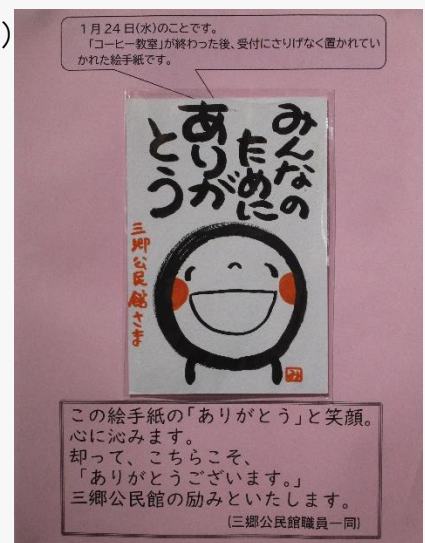 )
1月24日(水)のことです。
「コーヒー教室」が終わった後、受付にさりげなく置かれてい
かれた絵手紙です。
みんなの
ために
ありが
とう
三郷公民館さま
み
この絵手紙の「ありがとう」と笑顔。
心に沁みます。
却って、こちらこそ、
「ありがとうございます。」
三郷公民館の励みといたします。
(三郷公民館職員一同)